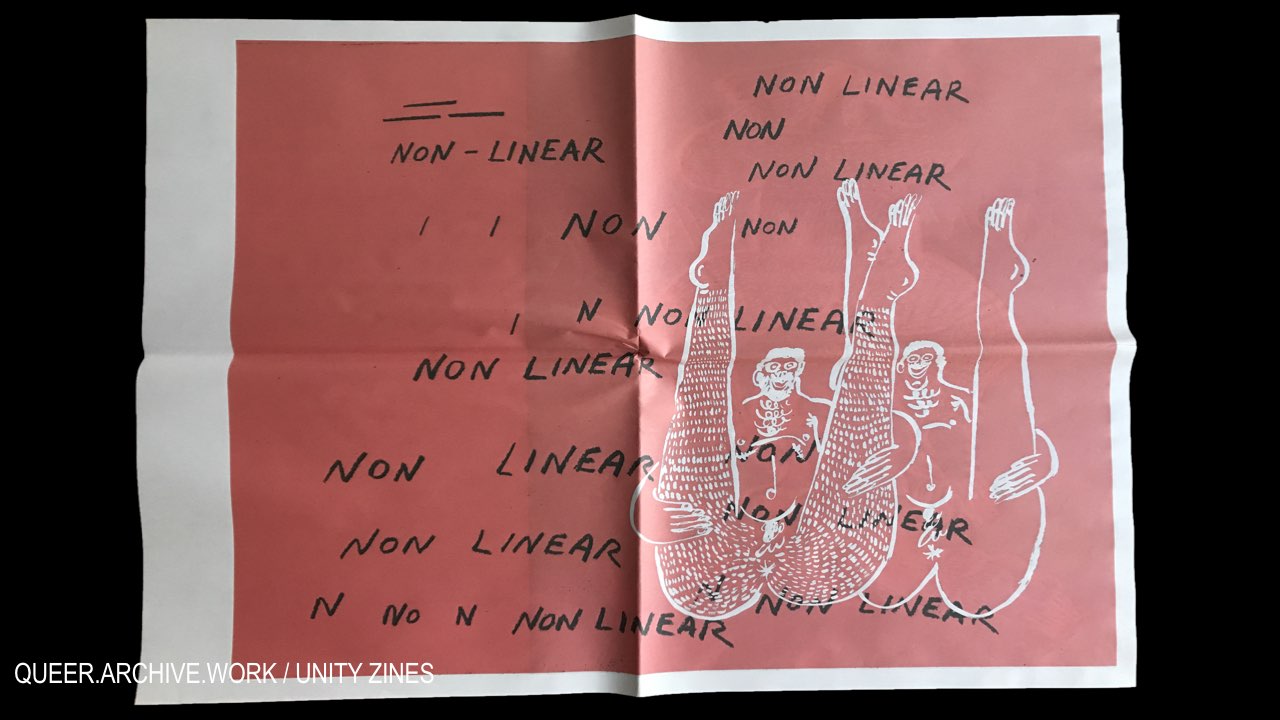 NON LINEAR
NON
NON-LINEAR
NON LINEAR
NON NON
N NON LINEAR
NON LINEAR
NON LINEAR NON
NON LINEAR
NON LINEAR
N NON LINEAR
N NO N NON LINEAR
QUEER.ARCHIVE.WORK / UNITY ZINES